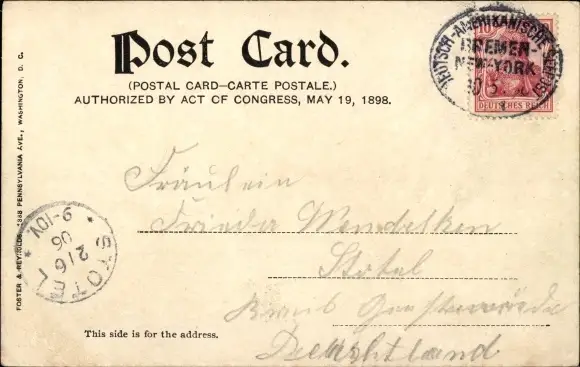 Post Card.
(POSTAL CARD—CARTE POSTALE.)
AUTHORIZED BY ACT OF CONGRESS, MAY 19, 1898.
DEUTSCH-AMERIKANISCHE SEEPOST
BREMEN
NEW-YORK
10
DEUTSCHES REICH
Fräulein
Frieda Mendelken
Stotel
Kreis Geestemünde
Deutschland
STOTEL
216
06
9-10V
This side is for the address.
FOSTER & REYNOLDS, PENNSYLVANIA AVE., WASHINGTON, D. C.